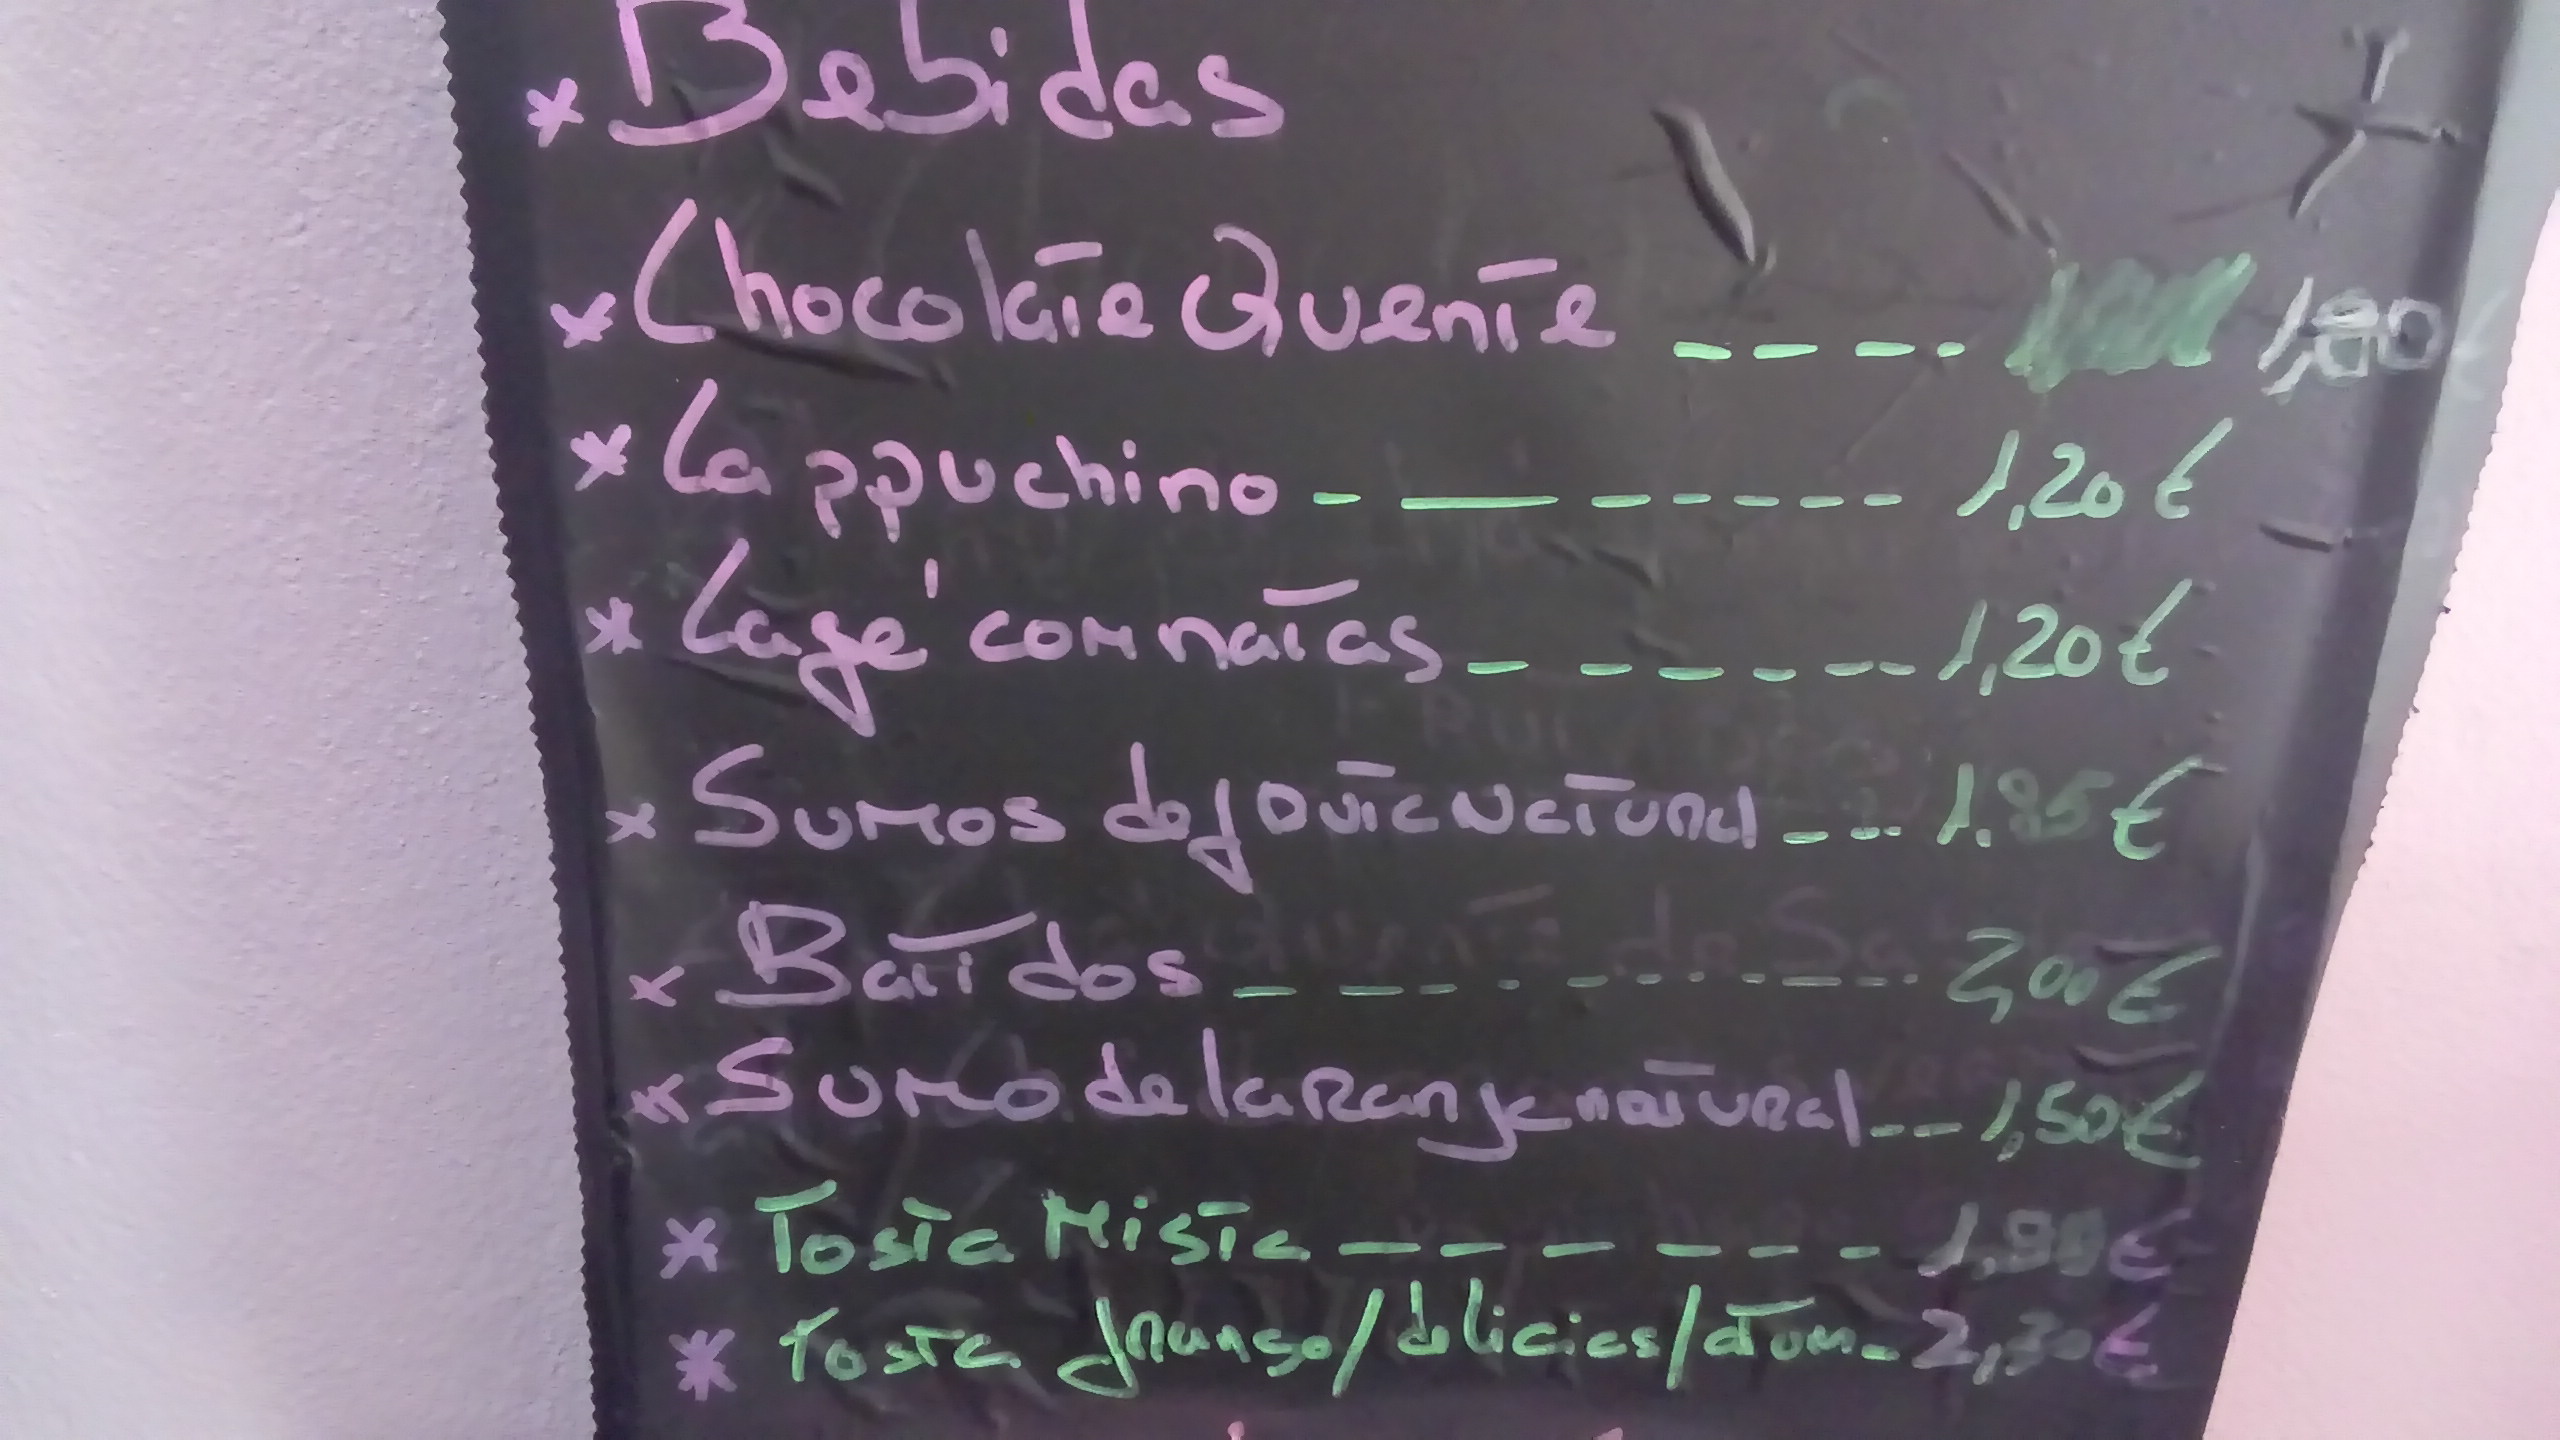 * Bebidas
* Chocolate Quente ---- 1,80€
* Cappuchino ------- 1,20€
* Café com natas ------ 1,20€
* Sumos de fruta Natural --- 1.85€
* Batidos --------- 2,00€
* Sumo de laranja natural -- 1,50€
* Tosta Mista ------ 1,90€
* Tosta frango/delicias/atum - 2,30€